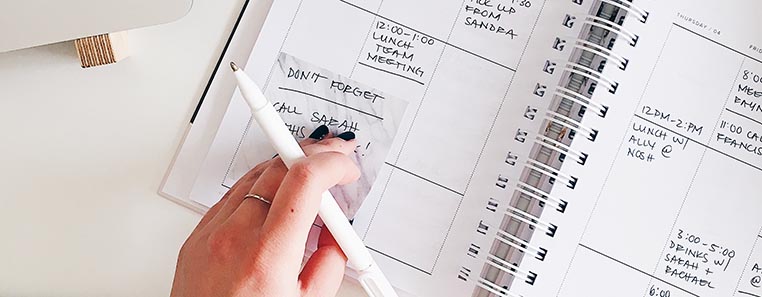 PICK UP
FROM
SANDRA
12:00-1:00
LUNCH
TEAM
MEETING
DON'T FORGET
CALL SARAH
THURSDAY . 04
FRID
12PM-2PM
LUNCH W/
ALLY @
NOSH
3:00-5:00
DRINKS W/
SARAH +
RACHAEL
6:00
8:00
MEE
11:00 CA
FRANCIS